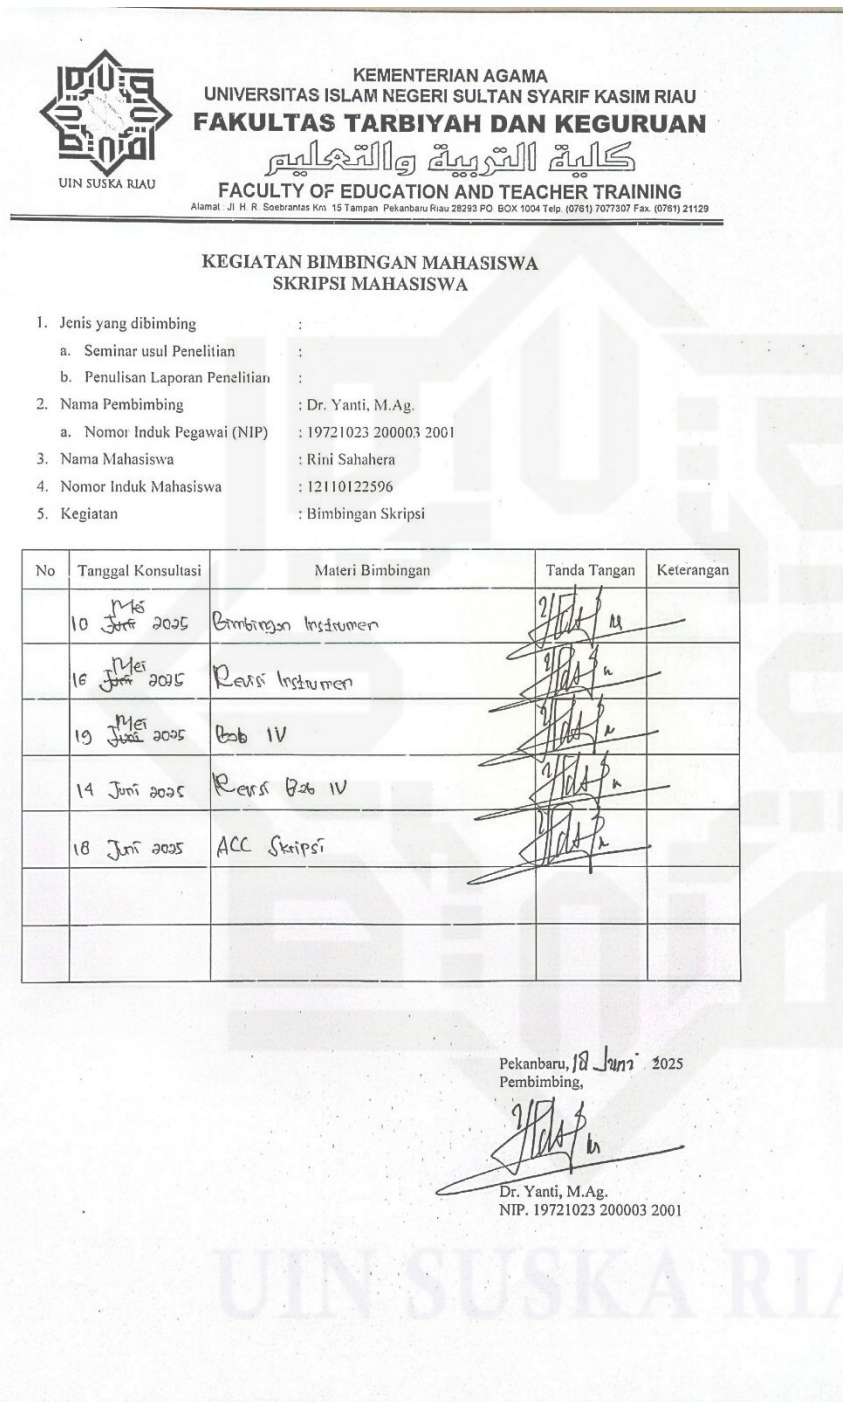 KEMENTERIAN AGAMA
UNIVERSITAS ISLAM NEGERI SULTAN SYARIF KASIM RIAU
FAKULTAS TARBIYAH DAN KEGURUAN
كلية التربية والتعليم
FACULTY OF EDUCATION AND TEACHER TRAINING
Alamat : Jl. H. R. Soebrantas Km. 15 Tampan Pekanbaru Riau 28293 PO. BOX 1004 Telp. (0761) 7077307 Fax. (0761) 21129
UIN SUSKA RIAU
KEGIATAN BIMBINGAN MAHASISWA
SKRIPSI MAHASISWA
1. Jenis yang dibimbing :
a. Seminar usul Penelitian :
b. Penulisan Laporan Penelitian :
2. Nama Pembimbing : Dr. Yanti, M.Ag.
a. Nomor Induk Pegawai (NIP) : 19721023 200003 2001
3. Nama Mahasiswa : Rini Sahahera
4. Nomor Induk Mahasiswa : 12110122596
5. Kegiatan : Bimbingan Skripsi
No Tanggal Konsultasi Materi Bimbingan Tanda Tangan Keterangan
10 Mei 2025 Bimbingan Instrumen
16 Mei 2025 Revisi Instrumen
19 Mei 2025 Bab IV
14 Juni 2025 Revisi Bab IV
18 Juni 2025 ACC Skripsi
Pekanbaru, 18 Juni 2025
Pembimbing,
Dr. Yanti, M.Ag.
NIP. 19721023 200003 2001
UIN SUSKA RIA